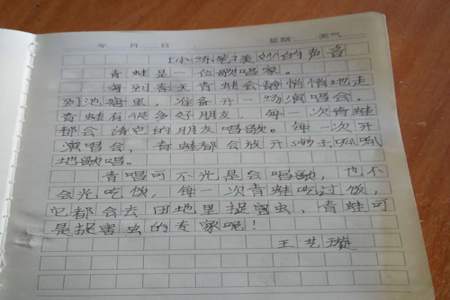 年 月 日 星期 天气
《小动物美妙的声音
青蛙是一位歌唱家。
每到春天青蛙会静悄悄地走
到池塘里，准备开一场演唱会。
青蛙有很多好朋友，每一次青蛙
都会请它的朋友唱歌。每一次开
演唱会，青蛙都会放开嗓子呱呱
地歌唱。
青唱可不光是会唱歌，也不
会光吃饭，每一次青蛙吃过饭，
它都会去田地里捉害虫，青蛙可
是捉害虫的专家呢！
王艺璇